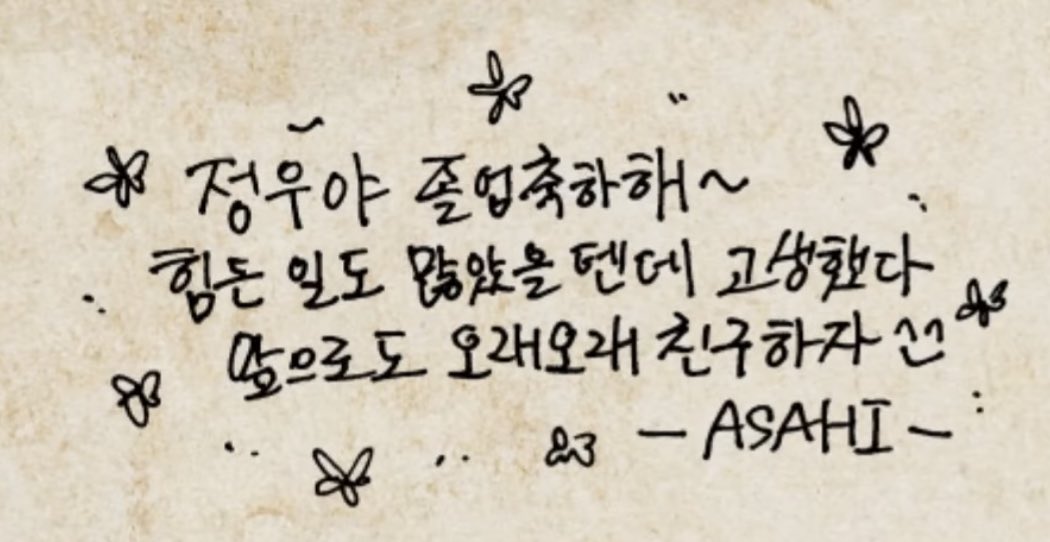 정우야 졸업축하해~
힘든 일도 많았을 텐데 고생했다
앞으로도 오래오래 친구하자 ^^
- ASAHI -